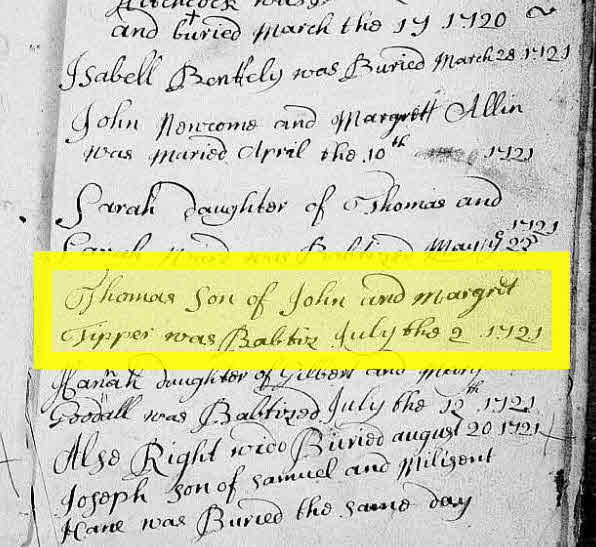 Hitchcock was
and buried March the 17 1720
Isabell Benkely was Buried March 28 1721
John Newcome and Margrett Allin
was maried April the 10th 1721
Sarah daughter of Thomas and
1721
Sarah was Babtized May 22
Thomas Son of John and Margret
Tipper was Babtiz July the 2 1721
Hanah daughter of Gilbert and Mary
Goodall was Babtized July the 12th 1721
Alse Right wido Buried august 20 1721
Joseph Son of Samuel and Milisent
Kane was Buried the same day